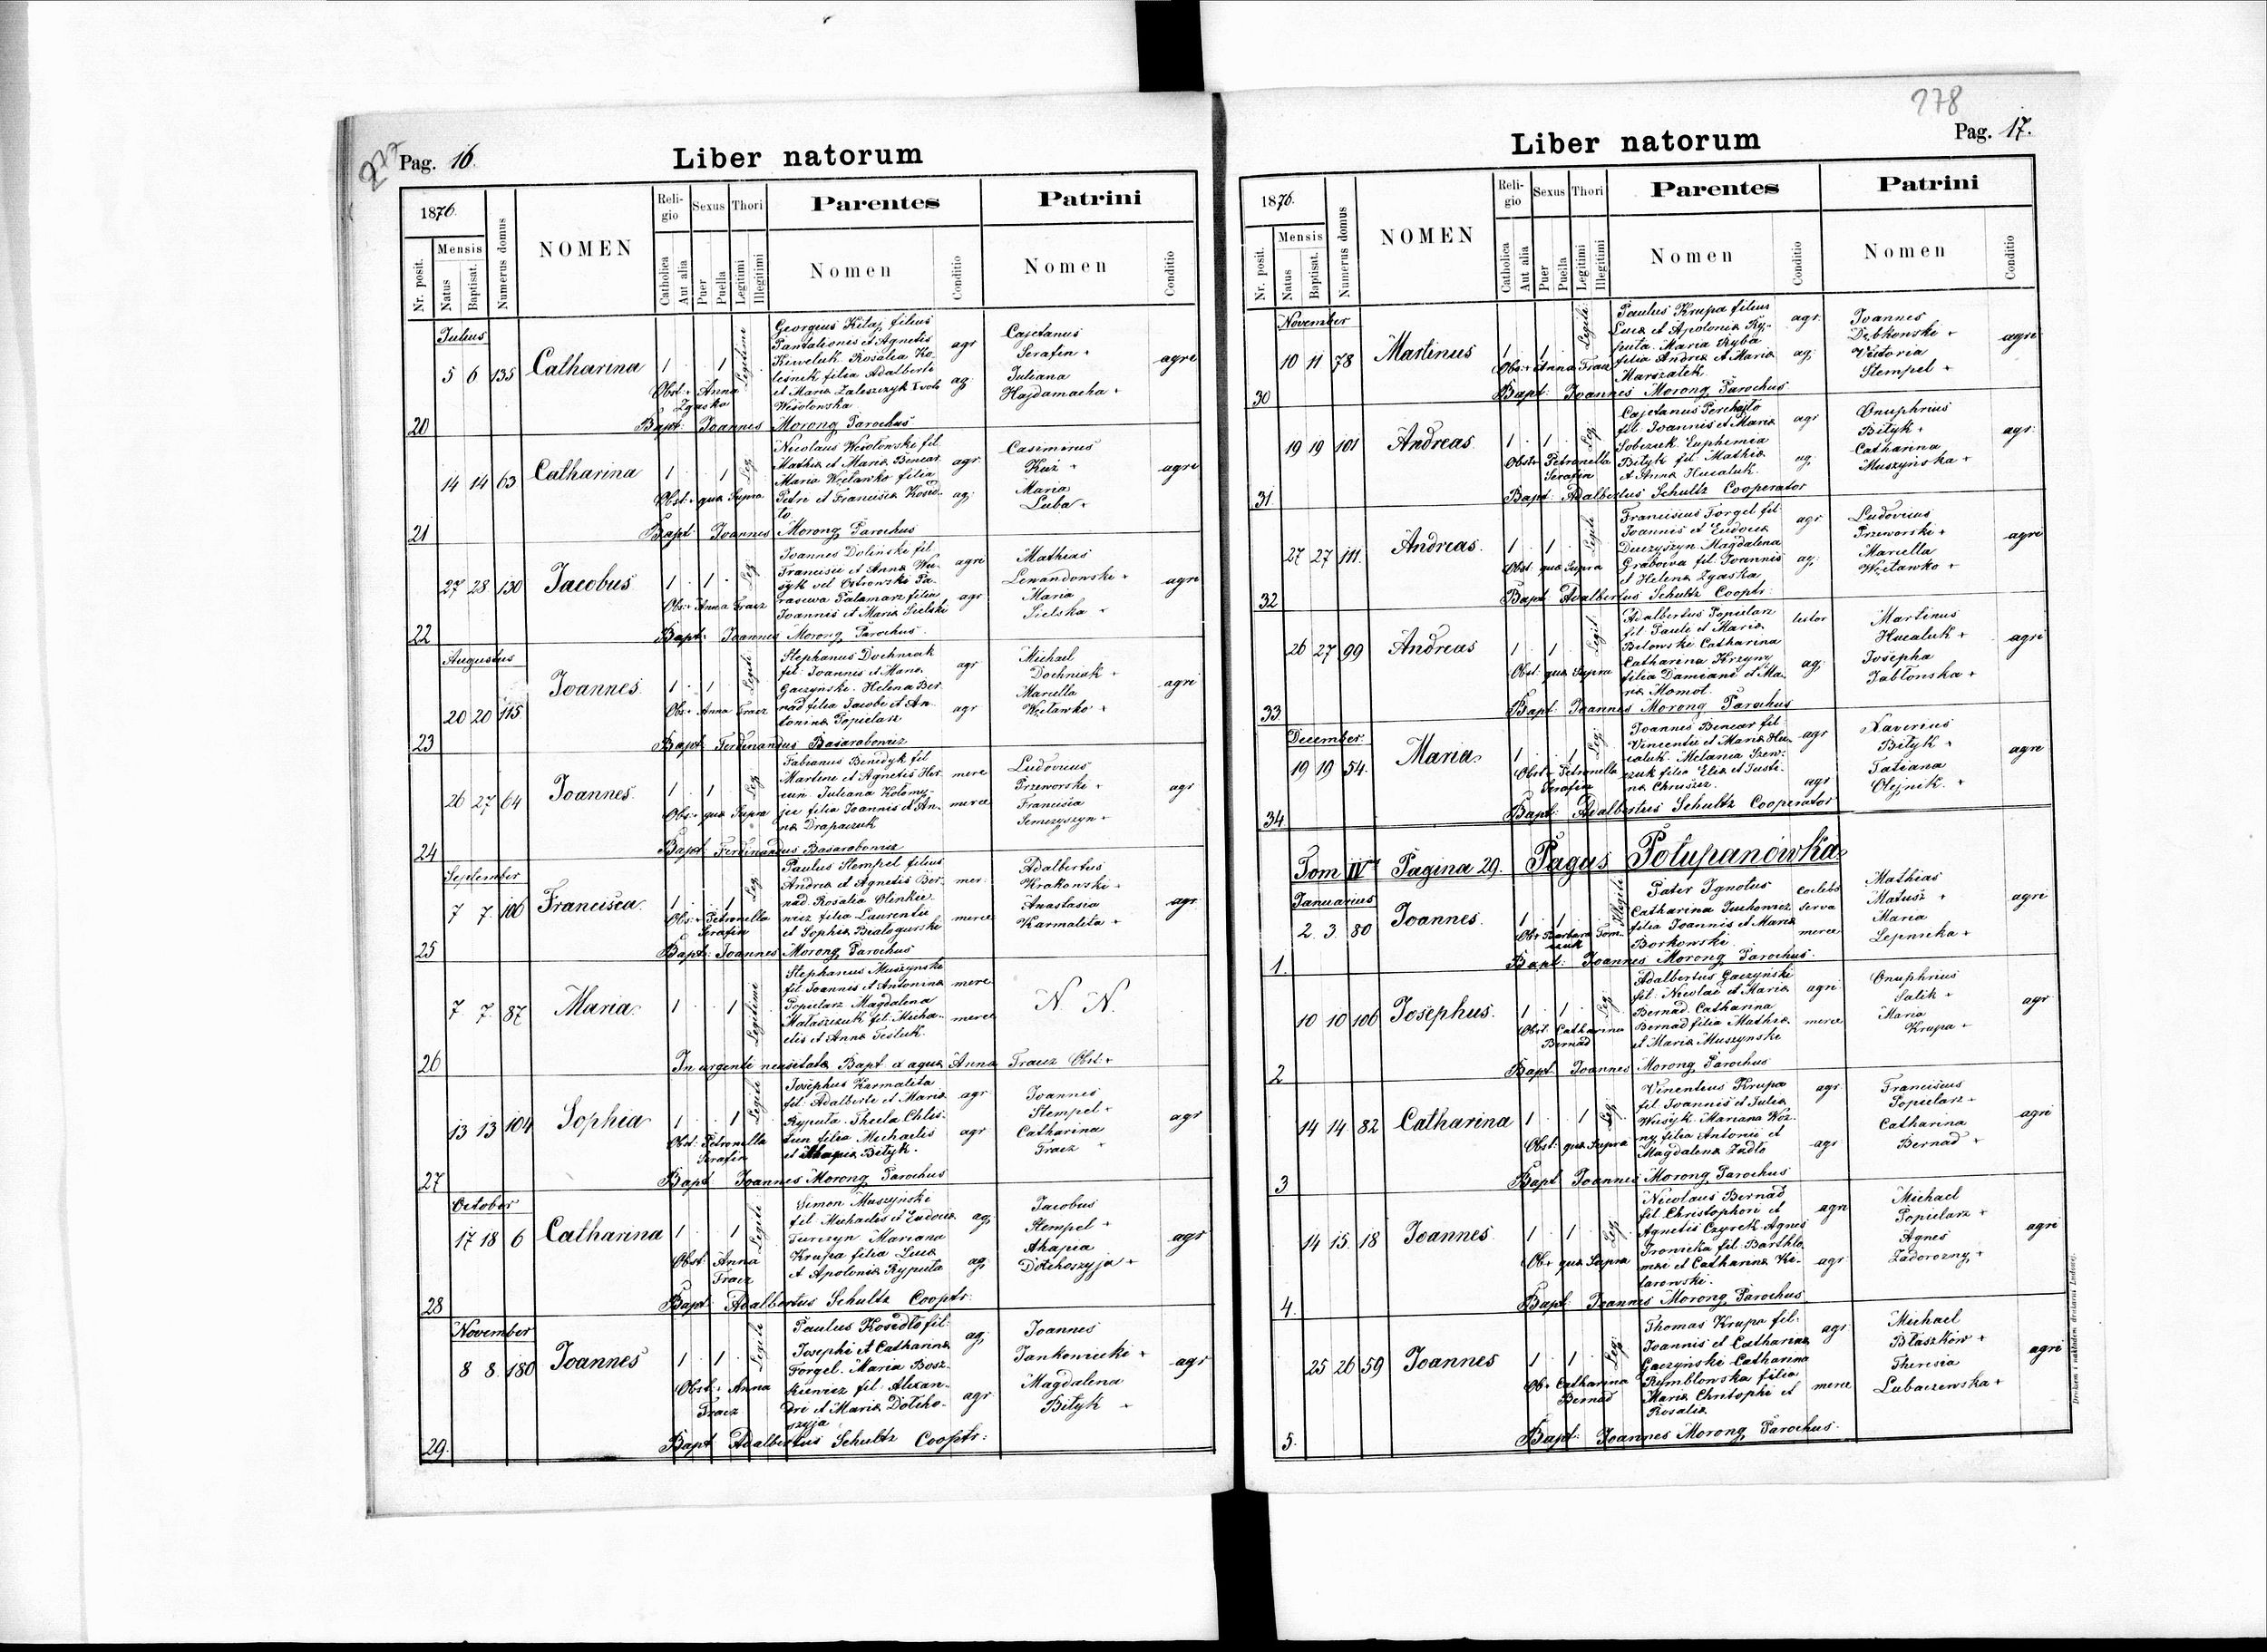 277
Pag. 16.
Liber natorum
1876.
Mensis
Nr. posit.
Natus
Baptisat.
Numerus domus
NOMEN
Religio
Catholica
Aut alia
Sexus
Puer
Puella
Thori
Legitimi
Illegitimi
Parentes
Nomen
Conditio
Patrini
Nomen
Conditio
Julius
20 5 6 135 Catharina 1 1 Legitimi
Georgius Kitaj filius
Pantalionis et Agnetis
Kiweluk. Rosalia Ko-
leśnik filia Adalberti
et Maria Zaleszczyk I voto
Wesołowska
agr
ag
Cajetanus
Serafin +
Juliana
Hajdamacha +
agri
Obst. Anna
Zgaska
Bapt: Joannes Morong Parochus
21 14 14 63 Catharina 1 1 Leg
Nicolaus Wesołowski fil
Mathiæ et Mariæ Bencar
Maria Węcławko filia
Petri et Francisca Kosid-
to
agr
ag:
Casimirus
Kuź +
Maria
Luba +
agri
Obst. quæ Supra
Bapt: Joannes Morong Parochus
22 27 28 130 Jacobus 1 1 Leg
Joannes Doliński fil
Francisci et Anna Wu-
syk vel Ostrowski Pa-
rasewa Palamarz filia
Joannis et Mariæ Sielski
agri
agr
Mathias
Lewandowski +
Maria
Sielska +
agri
Obs: Anna Tracz
Bapt: Joannes Morong Parochus.
Augustus
23 20 20 115 Joannes 1 1 Legiti
Stephanus Dochniak
fil. Joannis et Mariæ
Gaczyński. Helena Ber-
nad filia Jacobi et An-
toninæ Popielarz
agr
agr
Michael
Dochniak +
Mariella
Węcławko +
agri
Obs: Anna Tracz
Bapt: Ferdinandus Basarabowicz
24 26 27 64 Joannes 1 1 Leg
Fabianus Benedyk fil
Martini et Agnetis Her-
cun Juliana Kołomy-
jec filia Joannis et An-
næ Drapaczuk
merc
merce
Ludovicus
Przeworski +
Francisca
Semczyszyn +
agr
Obs: quæ Supra
Bapt: Ferdinandus Basarabowicz
September
25 7 7 106 Francisca 1 1 Leg
Paulus Stempel filius
Andreæ et Agnetis Ber-
nad. Rosalia Olenkie-
wicz filia Laurentii
et Sophiæ Białogurski
mer:
merce
Adalbertus
Krakowski +
Anastasia
Karmalita +
agr
Obs: Petronella
Serafin
Bapt: Joannes Morong Parochus
26 7 7 87 Maria 1 1 Legitimi
Stephanus Muszynski
fil Joannis et Antoninæ
Popielarz Magdalena
Mataszczuk fil: Micha-
elis et Anna Tesluk.
merc
merce
N N.
In urgenti necessitate Bapt: ex aqua Anna Tracz Obst: +
27 13 13 104 Sophia 1 1 Legiti
Josephus Karmalita
fil: Adalberti et Mariæ
Ryputa. Thecla Chlis-
tun filia Michaelis
et Ahapia Bityk.
agr
agr
Joannes
Stempel +
Catharina
Tracz +
agr
Obst: Petronella
Serafin
Bapt: Joannes Morong Parochus
October
28 17 18 6 Catharina 1 1 Legiti
Simon Muszyński
fil Michaelis et Eudociæ
Turczyn Mariana
Krupa filia Lucæ
et Apoloniæ Ryputa
ag,
ag,
Jacobus
Stempel +
Ahapia
Dołchoszyja +
agr
Obst: Anna
Tracz
Bapt: Adalbertus Schultz Cooptr:
November
29. 8 8 180 Joannes 1 1 Legiti
Paulus Kosidło fil
Josephi et Catharinæ
Forgel. Maria Bosz-
kiewicz fil: Alexan-
dri et Mariæ Dołcho-
szyja
ag;
agr
Joannes
Jankowiecki +
Magdalena
Bityk +
agr
Obst: Anna
Tracz
Bapt: Adalbertus Schultz Cooptr:
278
Pag. 17.
Liber natorum
1876.
Mensis
Nr. posit.
Natus
Baptisat.
Numerus domus
NOMEN
Religio
Catholica
Aut alia
Sexus
Puer
Puella
Thori
Legitimi
Illegitimi
Parentes
Nomen
Conditio
Patrini
Nomen
Conditio
November
30 10 11 78 Martinus 1 1 Legiti:
Paulus Krupa filius
Lucæ et Apoloniæ Ry-
puta. Maria Ryba
filia Andreæ et Mariæ
Marszałek
agr:
ag;
Joannes
Dębkowski +
Victoria
Stempel +
agri
Obs: Anna Tracz
Bapt: Joannes Morong Parochus
31 19 19 101 Andreas 1 1 Leg:
Cajetanus Perchajło
fil: Joannis et Mariæ
Sobczuk Euphemia
Bityk fil: Mathiæ
et Anna Hucaluk.
agr
ag
Onuphrius
Bityk +
Catharina
Muszyńska +
agr:
Obst: Petronella
Serafin
Bapt: Adalbertus Schultz Cooperator
32 27 27 111. Andreas 1 1 Legiti
Franciscus Forgel fil
Joannis et Eudociæ
Duczyszyn Magdalena
Grabowa fil: Joannis
et Helena Zgaska
agr
ag:
Ludovicus
Przeworski +
Mariella
Węcławko +
agri
Obst: quæ Supra
Bapt: Adalbertus Schultz Cooptr:
33 26 27 99 Andreas 1 1 Legit
Adalbertus Popielarz
fil: Pauli et Mariæ
Bilowski Catharina
Catharina Krzywy
filia Damiani et Ma-
riæ Momot.
textor
ag;
Martinus
Hucaluk +
Josepha
Jabłońska +
agri
Obst: quæ Supra
Bapt: Joannes Morong Parochus
December
34 19 19 54. Maria 1 1 Leg:
Joannes Bencar fil
Vincentii et Mariæ Hu-
caluk. Melania Szew-
czuk filia Eliæ et Justi-
næ Chruszcz.
agr
agr
Xaverius
Bityk +
Tatiana
Olejnik. +
agri
Obst: Petronella
Serafin
Bapt: Adalbertus Schultz Cooperator
Tom IV Pagina 29. Pagus Połupanówka
Januarius
1. 2. 3. 80 Joannes. 1 1 Illegiti
Pater Ignotus
Catharina Juchowicz
filia Joannis et Mariæ
Borkowski.
Coelebs
Serva
merce
Mathias
Matusz +
Maria
Lepnicka +
agri
Obs: Barbara Tom-
czuk
Bapt: Joannes Morong Parochus.
2 10 10 106 Josephus. 1 1 Leg:
Adalbertus Gaczyński
fil: Nicolai et Mariæ
Bernad. Catharina
Bernad filia Mathiæ
et Mariæ Muszynski
agri
merce
Onuphrius
Salik +
Maria
Krupa +
agr
Obst: Catharina
Bernad
Bapt: Joannes Morong Parochus
3 14 14 82 Catharina 1 1 Leg:
Vincentius Krupa
fil: Joannis et Julia
Wusyk. Mariana Woz-
ny filia Antonii et
Magdalena Zadło
agr
agr
Franciscus
Popielarz +
Catharina
Bernad +
agri
Obst: quæ Supra
Bapt: Joannes Morong Parochus
4. 14 15. 18 Joannes. 1 1 Leg:
Nicolaus Bernad
fil: Christophori et
Agnetis Czyrek Agnes
Ironicka fil: Barthlo-
mæi et Catharina Ki-
tarowski.
agri
agr:
Michael
Popielarz +
Agnes
Zadorozny +
agri
Ob: quæ Supra
Bapt: Joannes Morong Parochus
5. 25 26 59 Joannes 1 1 Leg:
Thomas Krupa fil:
Joannis et Catharinæ
Gaczyński Catharina
Remblowska filia
Mariæ Christophi et
Rosaliæ
agr:
merce
Michael
Błaszków +
Theresia
Lubaczewska +
agri
Ob: Catharina
Bernad
Bapt: Joannes Morong Parochus.
Drukiem i nakładem drukarni Ludowej.